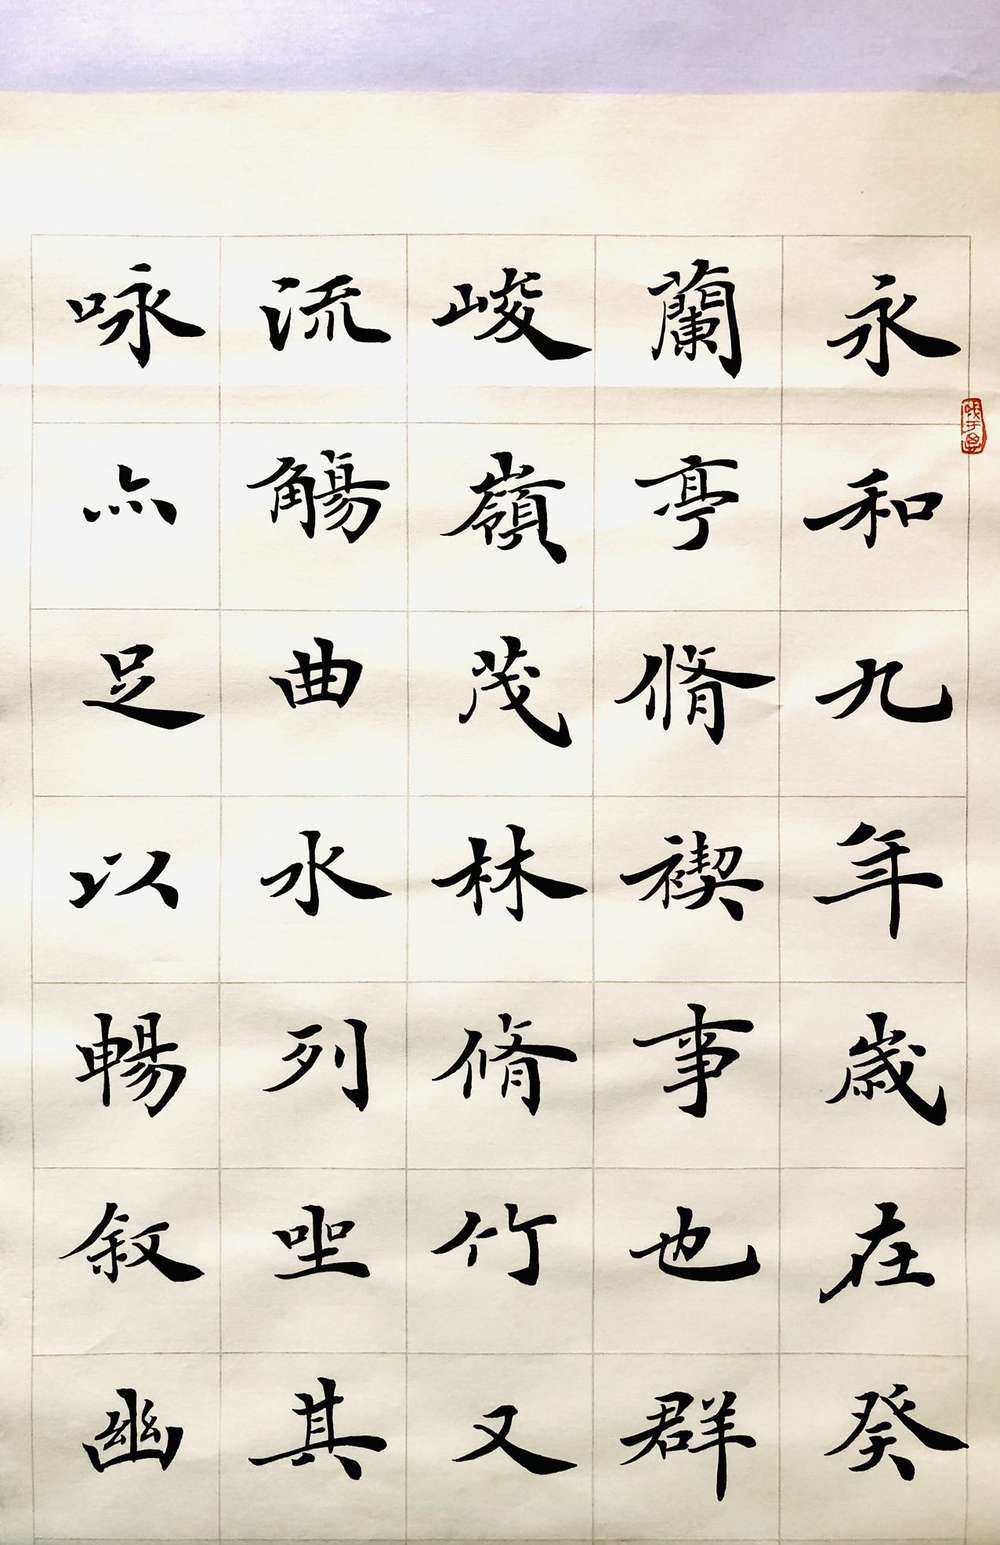 永和九年歲在癸
蘭亭脩禊事也群
峻嶺茂林脩竹又
流觴曲水列坐其
咏亦足以暢叙幽